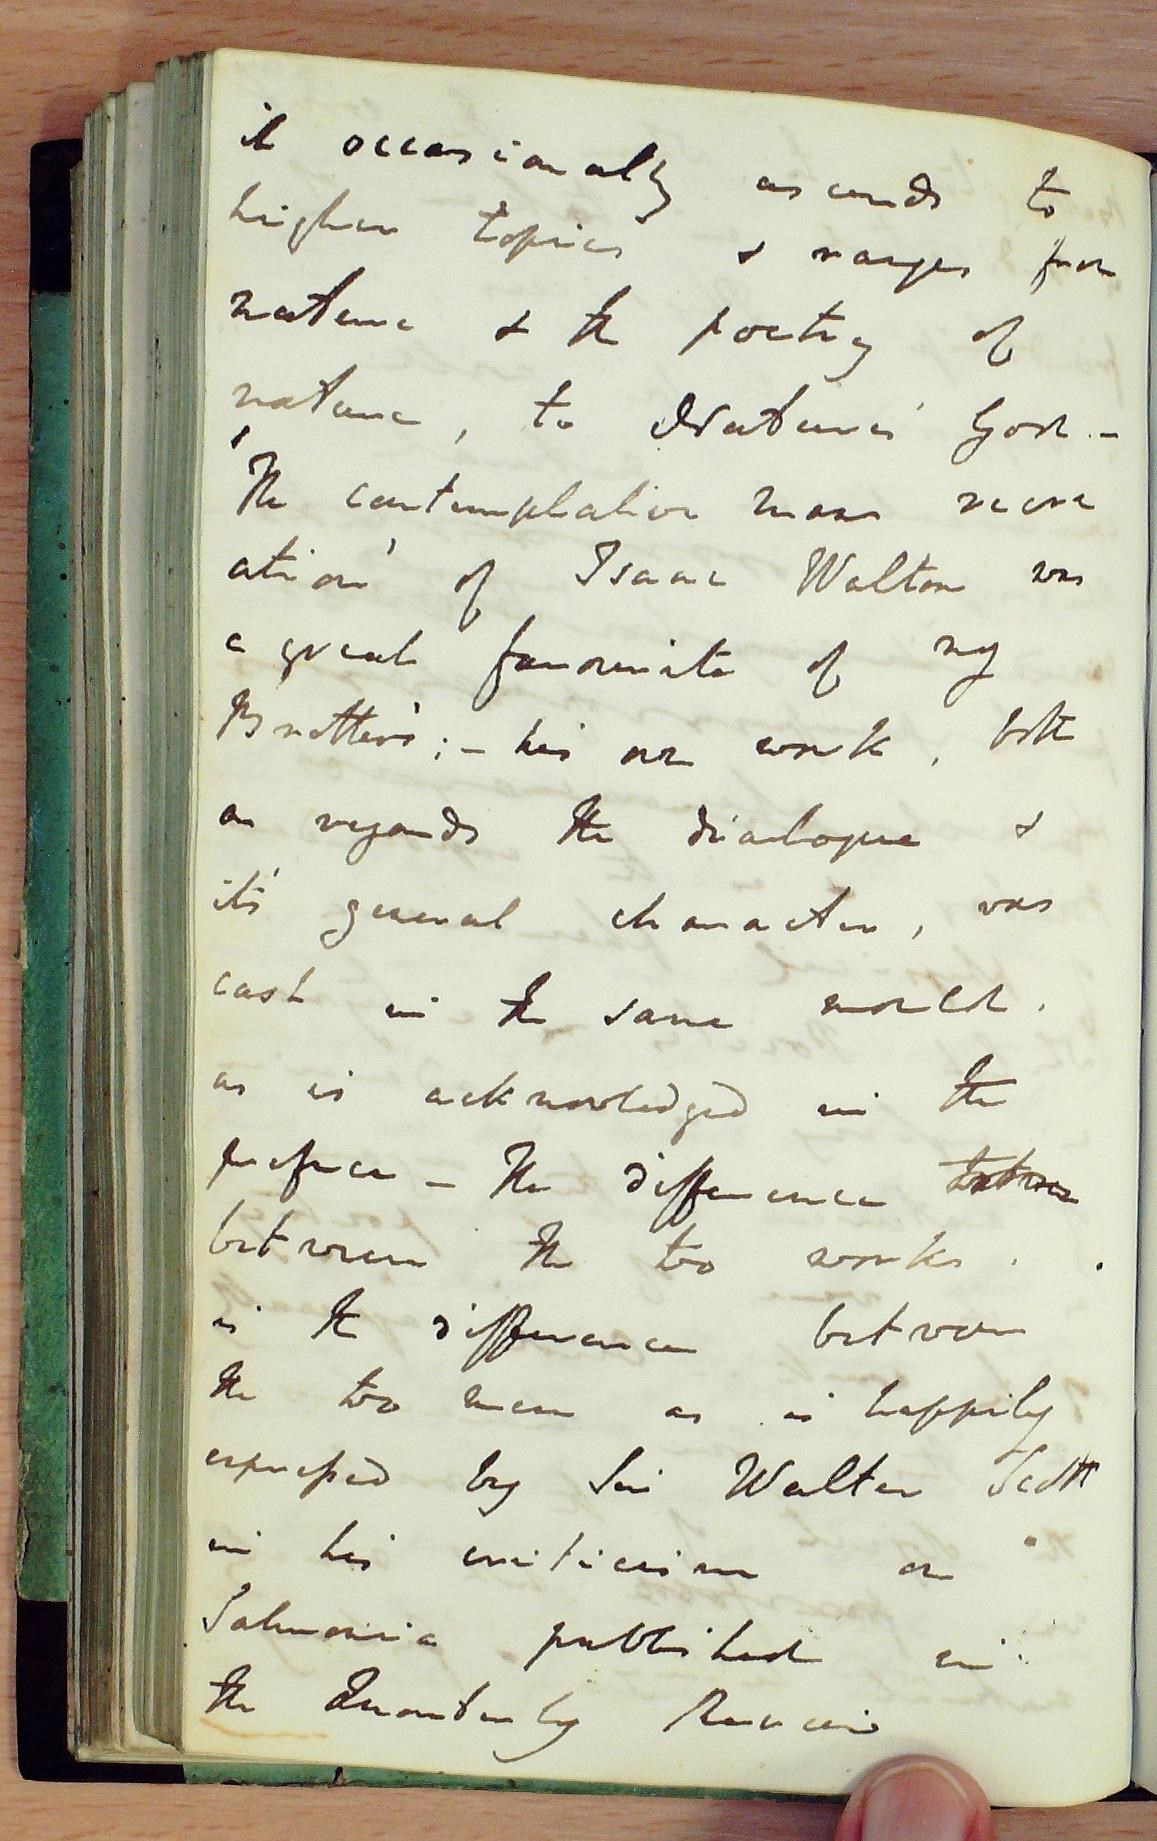 it occasionally ascends to
higher topics & ranges from
nature & the poetry of
nature, to Nature's God. -
'The contemplative mans recre
ation' of Isaac Walton was
a great favourite of my
Brother's; - his own work, both
as regards the dialogue &
it's general character, was
cast in the same mould.
as is acknowledged in the
preface - The difference
between the two works.
is the difference between
the two men as is happily
expressed by Sir Walter Scott
in his criticism on
Salmonia published in
the Quarterly Review